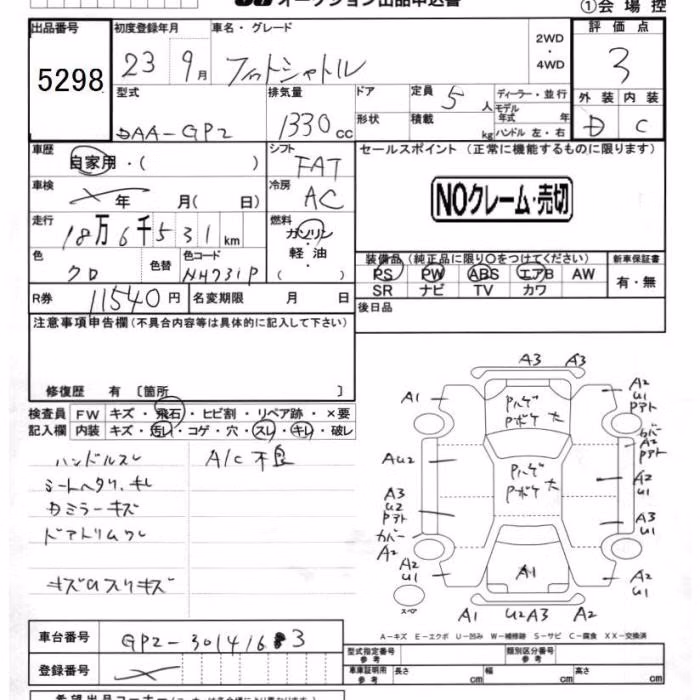 オークション出品申込書
①会場控
出品番号 初度登録年月 車名・グレード 評価点
5298 23 9月 フィットシャトル 2WD ・ 4WD 3
型式 排気量 ドア 定員 5人 ディーラー・並行 外装 内装
DAA-GP2 1330cc 形状 積載 kg モデル年式 年 ハンドル 左・右 D C
車歴 自家用・( ) シフト FAT セールスポイント (正常に機能するものに限ります)
車検 年 月( 日) 冷房 AC NOクレーム・売切
走行 18万6千531km 燃料 ガソリン・軽油・( )
色 クロ 色替 色コード NH731P
装備品 (純正品に限り○をつけてください) 新車保証書
PS PW ABS エアB AW 有・無
SR ナビ TV カワ
R券 11540円 名変期限 月 日 後日品
注意事項申告欄(不具合内容等は具体的に記入して下さい)
修復歴 有 〔箇所 〕
検査員 FW キズ・飛石・ヒビ割・リペア跡・×要
記入欄 内装 キズ・汚レ・コゲ・穴・スレ・キレ・破レ
ハンドルスレ A/C不良
シートヘタリ、キレ
Rミラーキズ
ドアトリムワレ
A3 A3
A1 A2 U1 Pアト
Pハゲ Pボケ 大
カバー A2 Pアト
AU2 A2 U1
Pハゲ Pボケ 大
A3 U2 Pアト A3 U1
カバー A2
A2 U1 A1 A2 U1
スペア
A1 U2A3 A2
A-キズ E-エクボ U-凹み W-補修跡 S-サビ C-腐食 XX-交換済
車台番号 GP2-3014163
型式指定番号 参考 類別区分番号 参考
登録番号 車庫証明用 参考 長さ cm 幅 cm 高さ cm